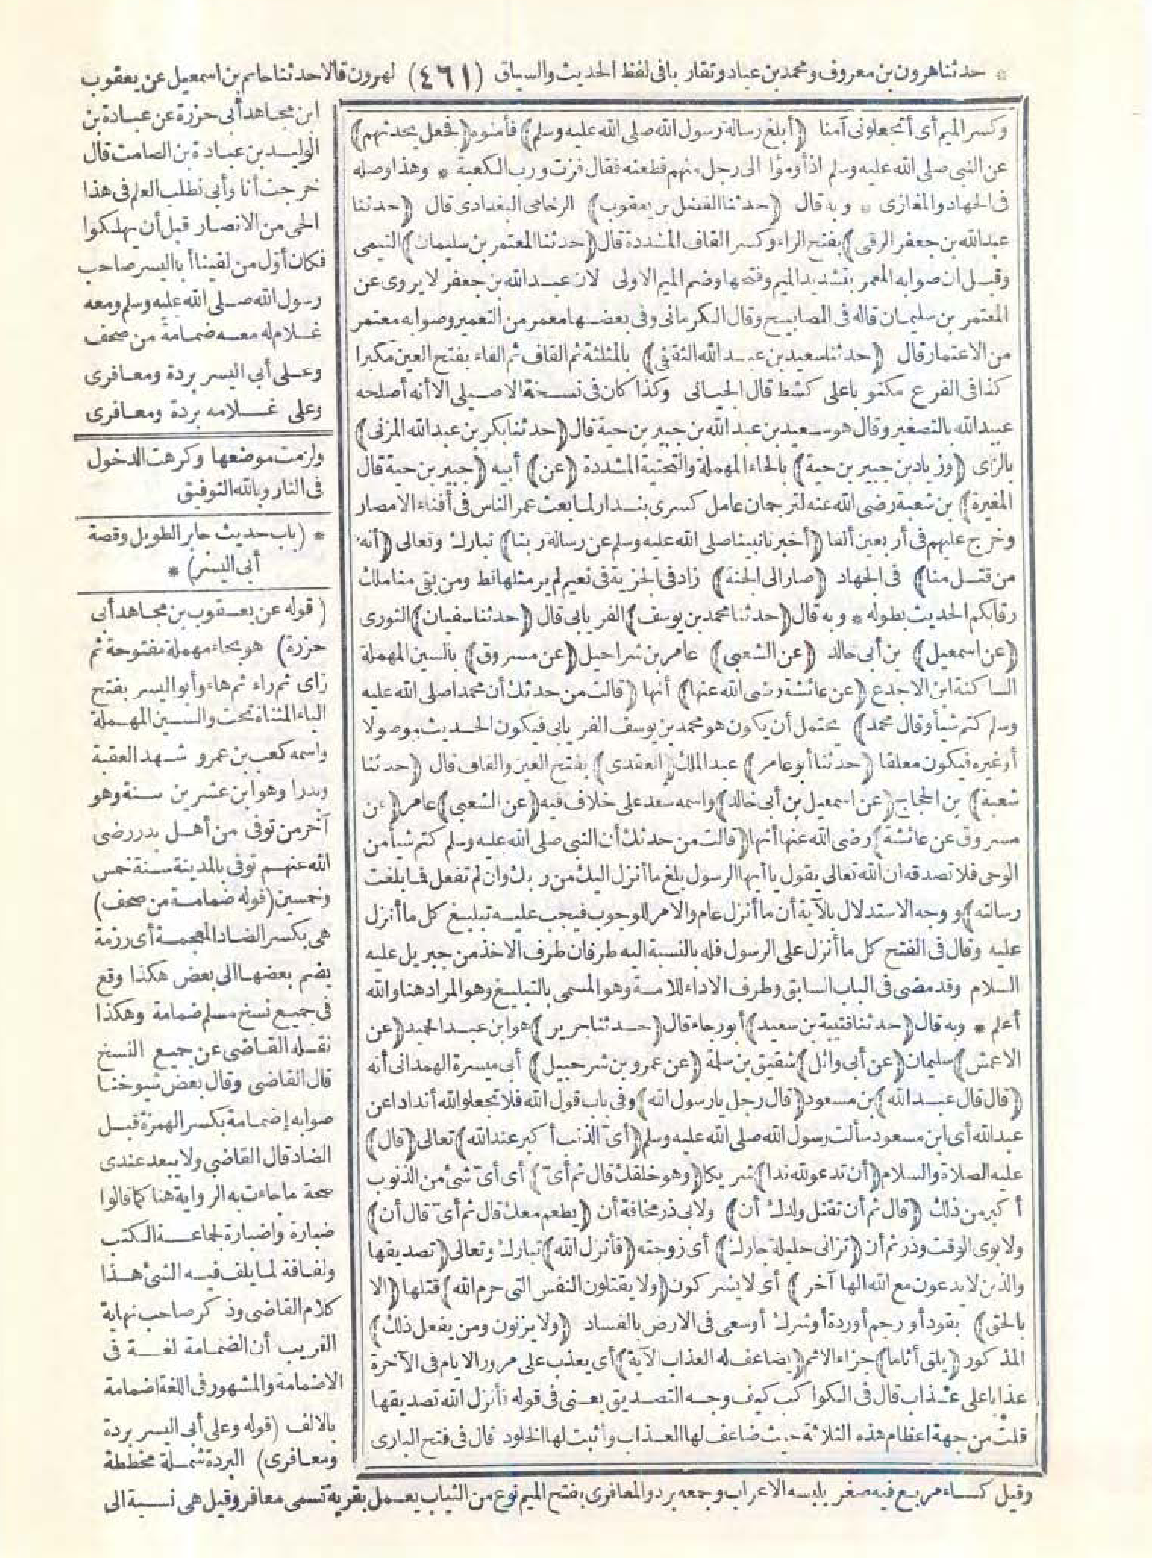 * حدثنا هرون بن معروف ومحمد بن عباد وتقاربا فى لفظ الحديث والسياق (٤٦١) لهرون قالا حدثنا حاتم بن اسمعيل عن يعقوب
وكسر الميم أى أتجعلونى آمنا (أبلغ رسالة رسول الله صلى الله عليه وسلم) فأمنوه (فجعل يحدثهم)
عن النبى صلى الله عليه وسلم اذ أومؤا الى رجل منهم فطعنه فقال فزت ورب الكعبة * وهذا وصله
فى الجهاد والمغازى * وبه قال (حدثنا الفضل بن يعقوب) الرخامى البغدادى قال (حدثنا
عبد الله بن جعفر الرقى) بفتح الراء وكسر القاف المشددة قال (حدثنا المعتمر بن سليمان) التيمى
وقيل ان صوابه المعمر بتشديد الميم وفتحها وضم الميم الاولى لان عبد الله بن جعفر لا يروى عن
المعتمر بن سليمان قاله فى المصابيح وقال الكرمانى وفى بعضها معمر من التعمير وصوابه معتمر
من الاعتمار قال (حدثنا سعيد بن عبد الله الثقفى) بالمثلثة ثم القاف ثم الفاء بفتح العين مكبرا
كذا فى الفرع مكتوبا على كشط قال الجيانى وكذا كان فى نسخة الاصيلى الا أنه أصلحه
عبيد الله بالتصغير وقال هو سعيد بن عبد الله بن جبير بن حية قال (حدثنا بكر بن عبد الله المزنى)
بالزاى (وزياد بن جبير بن حية) بالحاء المهملة والتحتية المشددة (عن) أبيه (جبير بن حية قال
المغيرة) بن شعبة رضى الله عنه لترجمان عامل كسرى بندار لما بعث عمر الناس فى أفناء الامصار
وخرج عليهم فى أربعين ألفا (أخبرنا نبينا صلى الله عليه وسلم عن رسالة ربنا) تبارك وتعالى (أنه
من قتل منا) فى الجهاد (صار الى الجنة) زاد فى الجزية فى نعيم لم ير مثلها قط ومن بقى منا ملك
رقابكم الحديث بطوله * وبه قال (حدثنا محمد بن يوسف) الفريابى قال (حدثنا سفيان) الثورى
(عن اسمعيل) بن أبى خالد (عن الشعبى) عامر بن شراحيل (عن مسروق) بالسين المهملة
الساكنة ابن الاجدع (عن عائشة رضى الله عنها) أنها (قالت من حدثك أن محمدا صلى الله عليه
وسلم كتم شيأ وقال محمد) يحتمل أن يكون هو محمد بن يوسف الفريابى فيكون الحديث موصولا
أو غيره فيكون معلقا (حدثنا أبو عامر) عبد الملك (العقدى) بفتح العين والقاف قال (حدثنا
شعبة) بن الحجاج (عن اسمعيل بن أبى خالد) واسمه سعد على خلاف فيه (عن الشعبى) عامر (عن
مسروق عن عائشة) رضى الله عنها أنها (قالت من حدثك أن النبى صلى الله عليه وسلم كتم شيأ من
الوحى فلا تصدقه ان الله تعالى يقول يا أيها الرسول بلغ ما أنزل اليك من ربك وان لم تفعل فما بلغت
رسالته) ووجه الاستدلال بالآية أن ما أنزل عام والامر للوجوب فيجب عليه تبليغ كل ما أنزل
عليه وقال فى الفتح كل ما أنزل على الرسول فله بالنسبة اليه طرفان طرف الاخذ من جبريل عليه
السلام وقد مضى فى الباب السابق وطرف الاداء للامة وهو المسمى بالتبليغ وهو المراد هنا والله
أعلم * وبه قال (حدثنا قتيبة بن سعيد) أبو رجاء قال (حدثنا جرير) هو ابن عبد الحميد (عن
الاعمش) سليمان (عن أبى وائل) شقيق بن سلمة (عن عمرو بن شرحبيل) أبى ميسرة الهمدانى أنه
(قال قال عبد الله) بن مسعود (قال رجل يا رسول الله) وفى باب قول الله فلا تجعلوا لله أندادا عن
عبد الله أى ابن مسعود سألت رسول الله صلى الله عليه وسلم (أى الذنب أكبر عند الله) تعالى (قال)
عليه الصلاة والسلام (أن تدعو لله ندا) شريكا (وهو خلقك قال ثم أى) أى أى شئ من الذنوب
أكبر من ذلك (قال ثم أن تقتل ولدك أن) ولابى ذر مخافة أن (يطعم معك قال ثم أى قال أن)
ولابوى الوقت وذر ثم أن (تزانى حليلة جارك) أى زوجته (فأنزل الله) تبارك وتعالى (تصديقها
والذين لا يدعون مع الله الها آخر) أى لا يشركون (ولا يقتلون النفس التى حرم الله) قتلها (الا
بالحق) بقود أو رجم أو ردة أو شرك أو سعى فى الارض بالفساد (ولا يزنون ومن يفعل ذلك)
المذكور (يلق أثاما) جزاء الاثم (يضاعف له العذاب الآية) أى يعذب على مرور الايام فى الآخرة
عذابا على عذاب قال فى الكواكب كيف وجه التصديق يعنى فى قوله فأنزل الله تصديقها
قلت من جهة اعظام هذه الثلاثة حيث ضاعف لها العذاب وأثبت لها الخلود قال فى فتح البارى
ابن مجاهد أبى حزرة عن عبادة بن
الوليد بن عبادة بن الصامت قال
خرجت أنا وأبى نطلب العلم فى هذا
الحى من الانصار قبل أن يهلكوا
فكان أول من لقينا أبا اليسر صاحب
رسول الله صلى الله عليه وسلم ومعه
غلام له معه ضمامة من صحف
وعلى أبى اليسر بردة ومعافرى
وعلى غلامه بردة ومعافرى
ولزمت موضعها وكرهت الدخول
فى النار وبالله التوفيق
* (باب حديث جابر الطويل وقصة
أبى اليسر) *
(قوله عن يعقوب بن مجاهد أبى
حزرة) هو بحاء مهملة مفتوحة ثم
زاى ثم راء ثم هاء وأبو اليسر بفتح
الياء المثناة تحت والسين المهملة
واسمه كعب بن عمرو شهد العقبة
وبدرا وهو ابن عشرين سنة وهو
آخر من توفى من أهل بدر رضى
الله عنهم توفى بالمدينة سنة خمس
وخمسين (قوله ضمامة من صحف)
هى بكسر الضاد المعجمة أى رزمة
يضم بعضها الى بعض هكذا وقع
فى جميع نسخ مسلم ضمامة وهكذا
نقله القاضى عن جميع النسخ
قال القاضى وقال بعض شيوخنا
صوابه إضمامة بكسر الهمزة قبل
الضاد قال القاضى ولا يبعد عندى
صحة ما جاءت به الرواية هنا كما قالوا
ضبارة واضبارة لجماعة الكتب
ولفافة لما يلف فيه الشئ هذا
كلام القاضى وذكر صاحب نهاية
الغريب أن الضمامة لغة فى
الاضمامة والمشهور فى اللغة اضمامة
بالالف (قوله وعلى أبى اليسر بردة
ومعافرى) البردة شملة مخططة
وقيل كساء مربع فيه صغر يلبسه الاعراب وجمعه برد والمعافرى بفتح الميم نوع من الثياب يعمل بقرية تسمى معافر وقيل هى نسبة الى